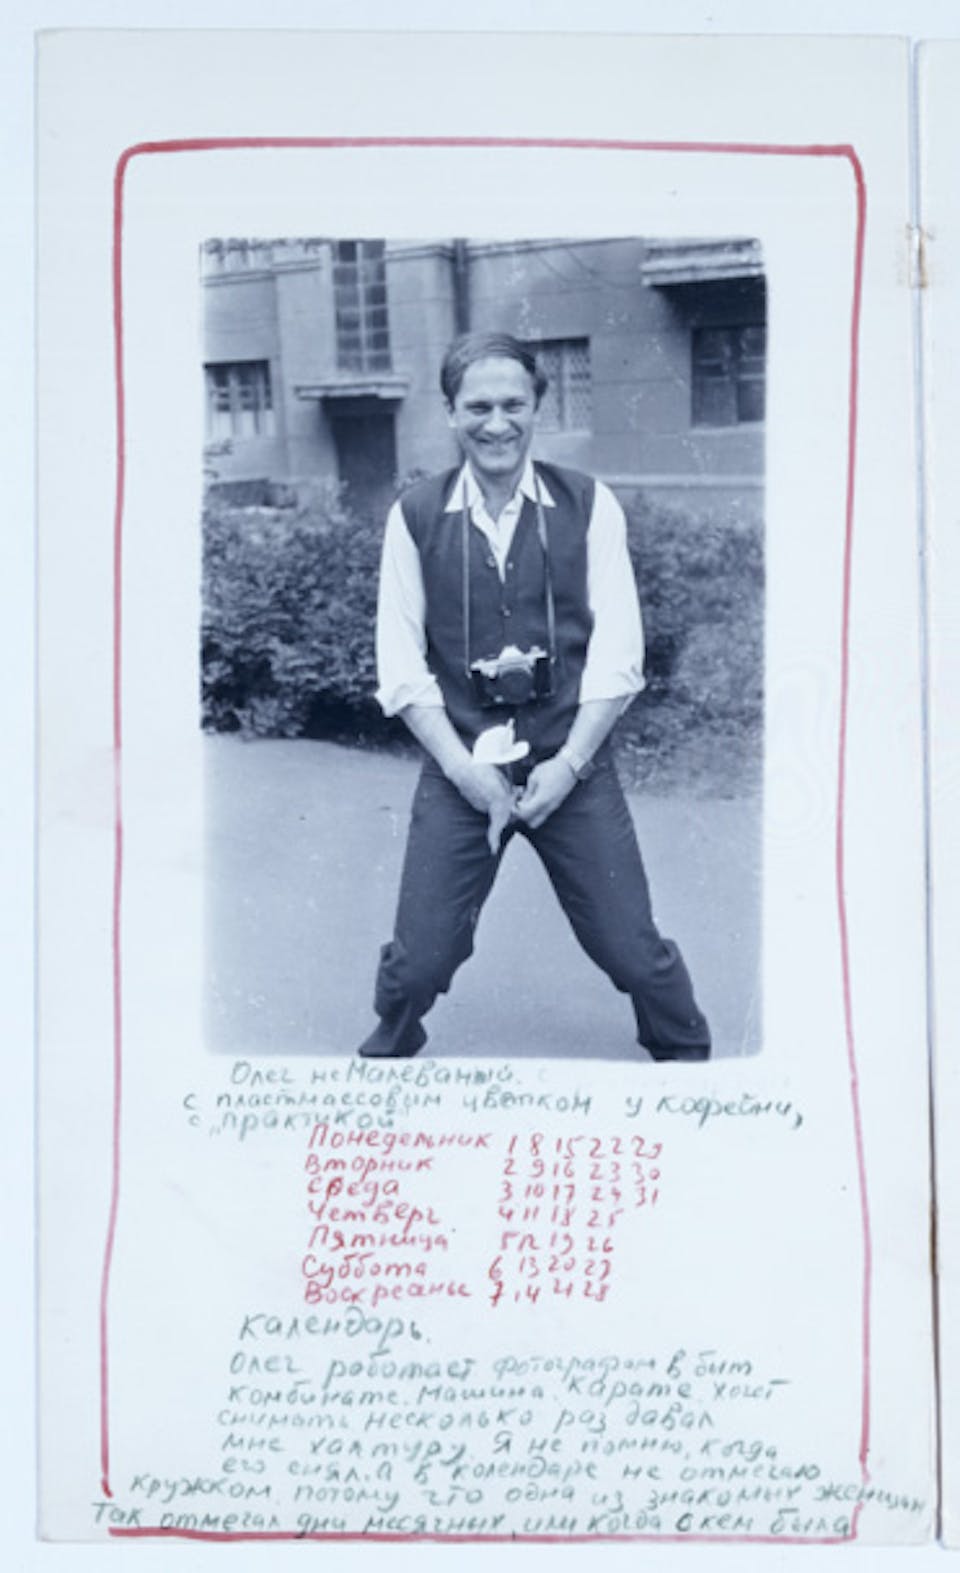 Олег не Малеваный.
с пластмассовым цветком у кофейни,
с "практикой"
Понедельник 1 8 15 22 29
Вторник 2 9 16 23 30
Среда 3 10 17 24 31
Четверг 4 11 18 25
Пятница 5 12 19 26
Суббота 6 13 20 27
Воскресанье 7 14 21 28
Календарь.
Олег работает фотографом в быт
комбинате. Машина. Карате. хочет
снимать несколько раз давал
мне халтуру. Я не помню, когда
его снял. А в календаре не отмечаю
кружком, потому что одна из знакомых женщин
Так отмечал дни месячных, или когда с кем была